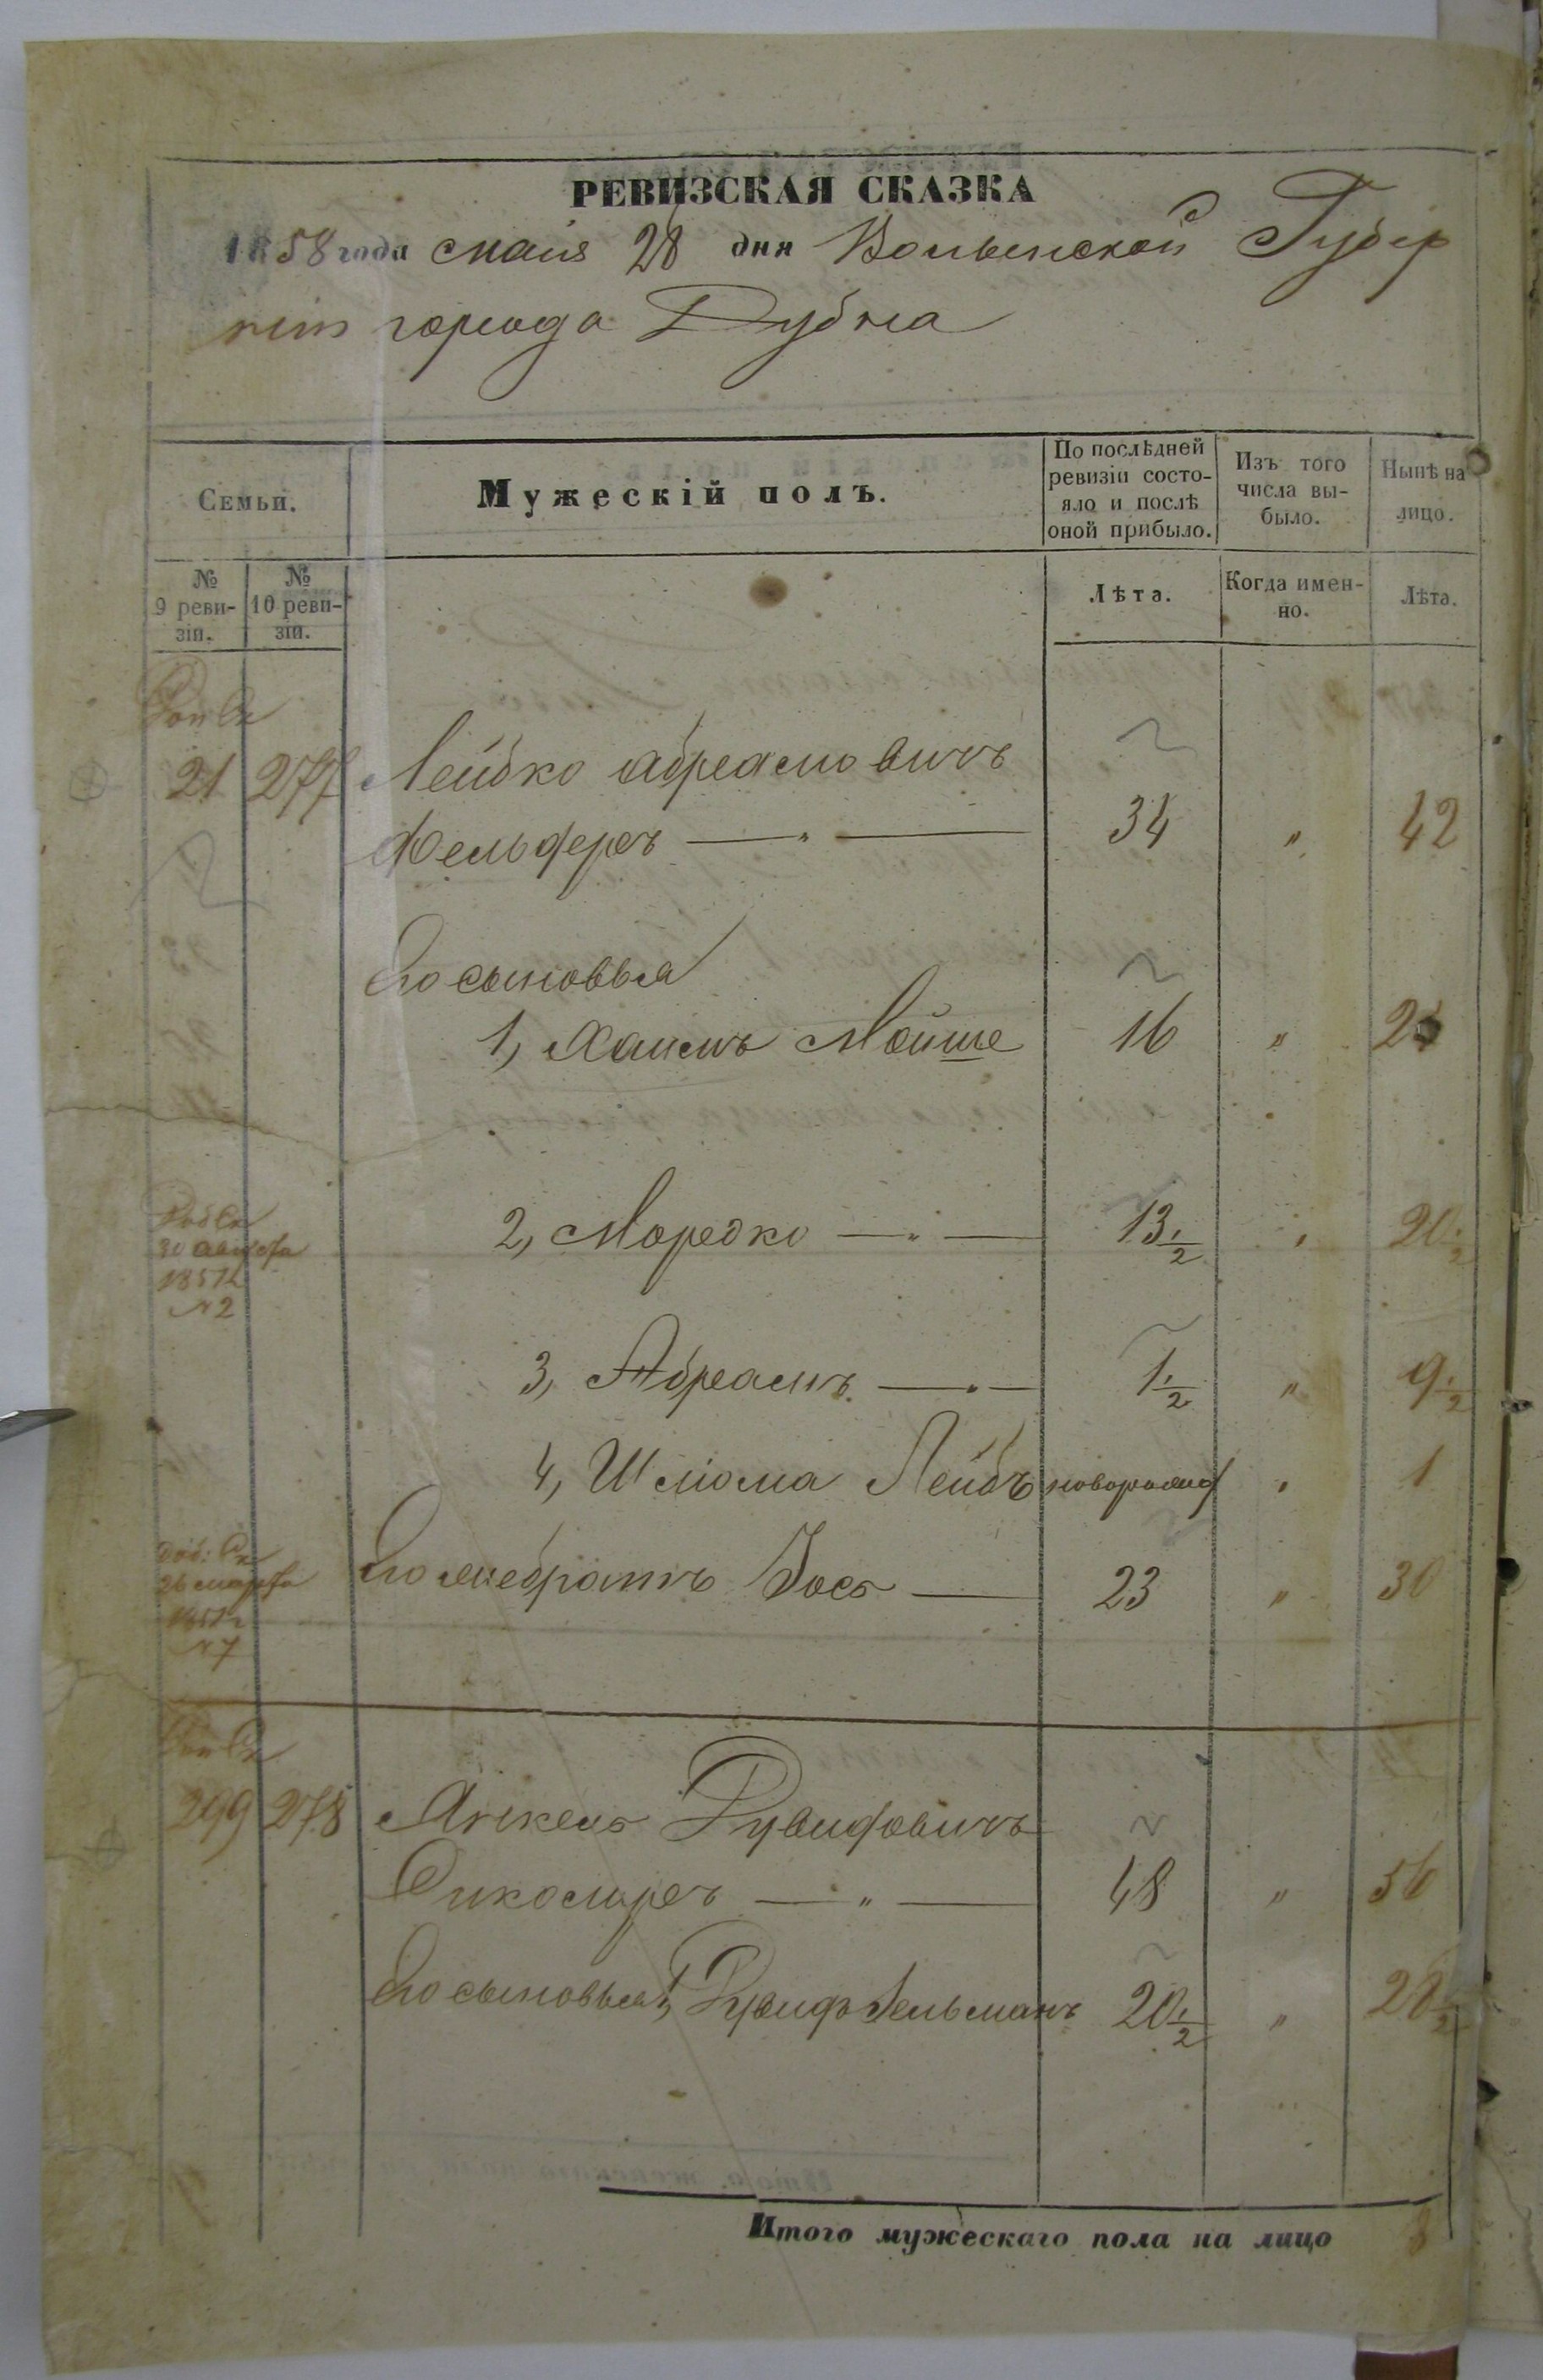 РЕВИЗСКАЯ СКАЗКА
1858 года маія 28 дня Волынской Губер
ніи города Дубна
Семьи.
Мужескій полъ.
По послѣдней ревизіи состо-
яло и послѣ
оной прибыло.
Изъ того
числа вы-
было.
Нынѣ на
лицо.
№
9 реви-
зіи.
№
10 реви-
зіи.
Лѣта.
Когда имен-
но.
Лѣта.
21 277 Лейбко Абрамовичъ
Фельферъ — " — 34 " 42
Его сыновья
1, Хаимъ Мойше 16 " 24
2, Мордко — " — 13 1/2 " 20 1/2
30 августа
1851 г
№ 2
3, Абрамъ — " — 1 1/2 " 9 1/2
4, Шлёма Лейбъ новорожд " 1
Доб: Ск
26 марта
1851 г
№ 7
Его же братъ Іось — 23 " 30
299 278 Анкель Рувиновичъ
48 " 56
Его сыновья 1, Рувинъ Зельманъ 20 1/2 " 28 1/2
Итого мужескаго пола на лицо 8